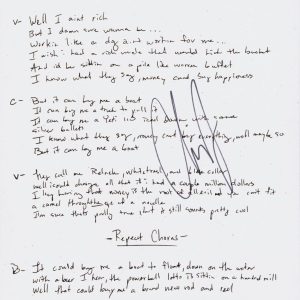 V- Well I ain't rich
But I damn sure wanna be...
Workin like a dog ain't workin for me...
I wish I had a rich uncle that would kick the bucket
And id be sittin on a pile like warren buffet
I know what they say, money cant buy happiness
C- But it can buy me a boat
It can buy me a truck to pull it
It can buy me a Yeti 110 iced down with some
silver bullets
I know what they say, money cant buy everything, well maybe so
But it can buy me a boat
V- They call me Redneck, whitetrash, and blue collar
well i could change all that if i had a couple million dollars
I keep hearing that money is the root of all evil and you cant fit
a camel through the eye of a needle
Im sure that's prolly true, but it still sounds pretty cool
- Repeat Chorus -
B- It could buy me a boat to float, down on the water
with a beer I hear, the powerball lotto is sittin on a hundred mill
Well that could buy me a brand new rod and reel